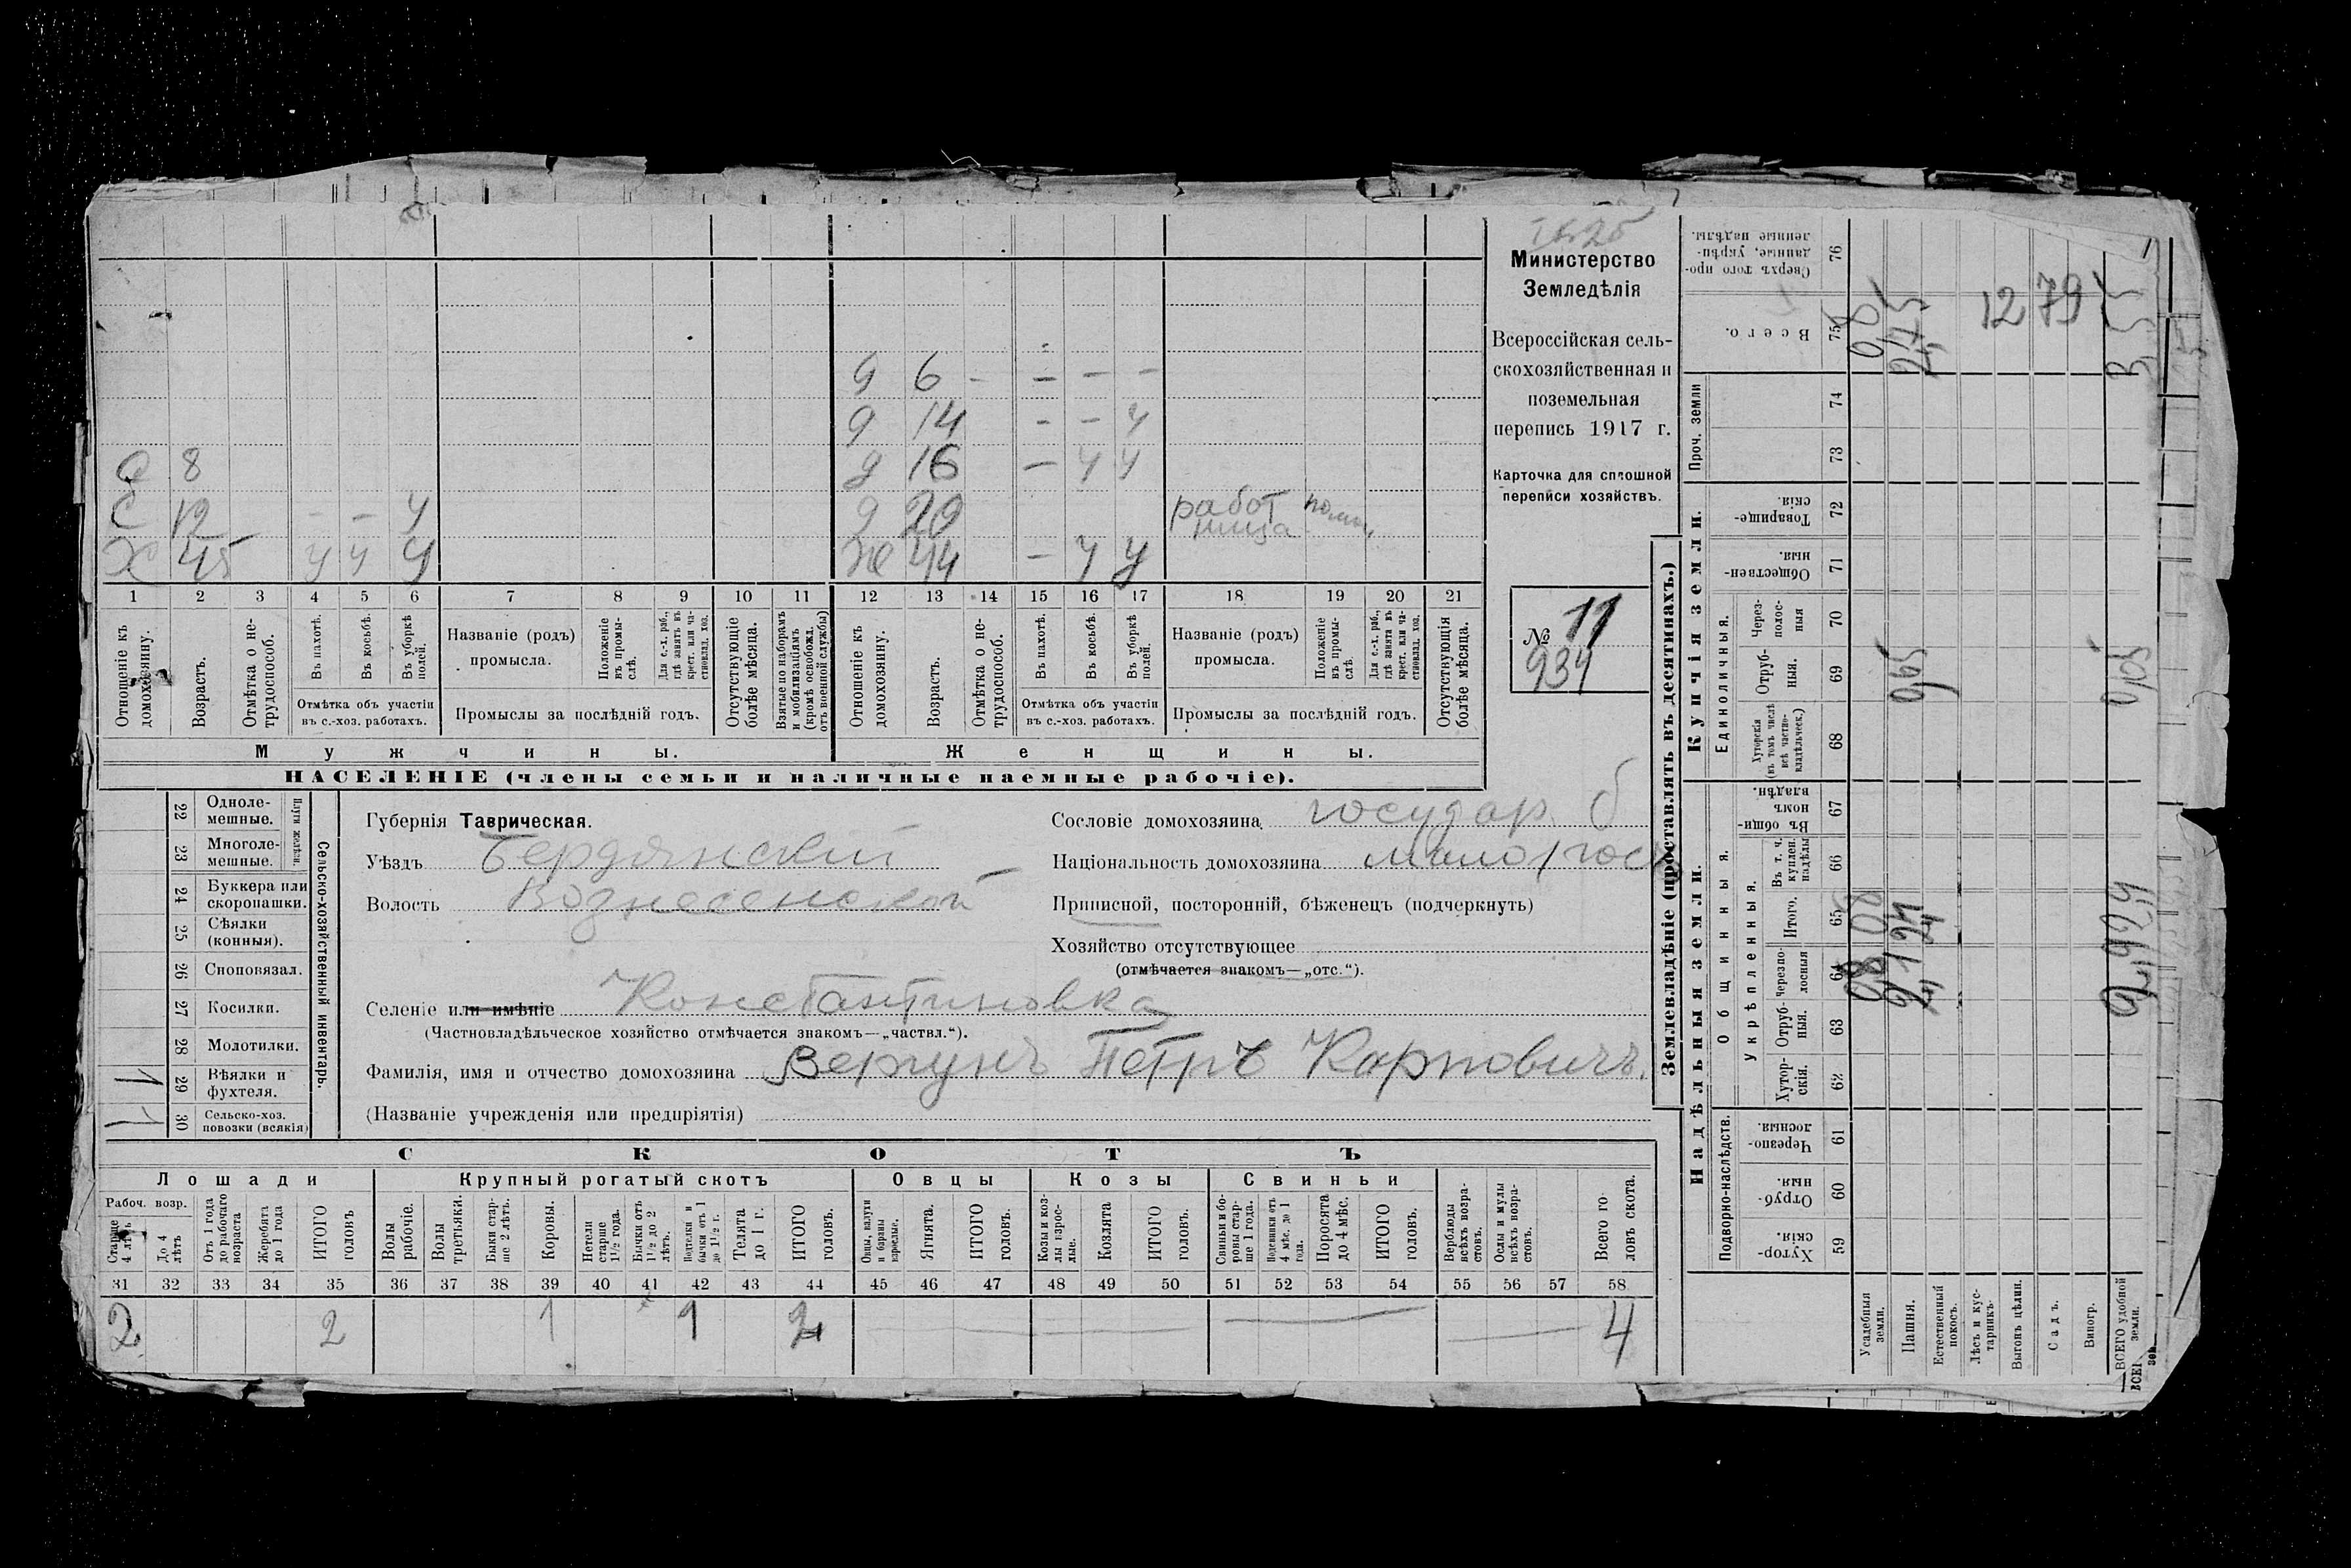 Министерство
Земледѣлія
Всероссійская сель-
скохозяйственная и
поземельная
перепись 1917 г.
Карточка для сплошной
переписи хозяйствъ.
№ 11
934
9 6 - - - -
9 14 - - у
С 8 9 16 - у у
С 12 - - у 9 20 работ
ница
Х 45 у у у Ж 44 - у у
1 2 3 4 5 6 7 8 9 10 11 12 13 14 15 16 17 18 19 20 21
Отношеніе къ домохозяину.
Возрастъ.
Отмѣтка о не-трудоспособ.
Въ пахотѣ.
Въ косьбѣ.
Въ уборкѣ полей.
Отмѣтка объ участіи
въ с.-хоз. работахъ.
Названіе (родъ)
промысла.
Положеніе въ промы-слѣ.
Для с.-х. раб., гдѣ занятъ въ крест. или ча-стновлад. хоз.
Промыслы за послѣдній годъ.
Отсутствующіе болѣе мѣсяца.
Взятые по наборамъ и мобилизаціямъ (кромѣ освобожд. отъ военной службы)
Отношеніе къ домохозяину.
Возрастъ.
Отмѣтка о не-трудоспособ.
Въ пахотѣ.
Въ косьбѣ.
Въ уборкѣ полей.
Отмѣтка объ участіи
въ с.-хоз. работахъ.
Названіе (родъ)
промысла.
Положеніе въ промы-слѣ.
Для с.-х. раб., гдѣ занята въ крест. или ча-стновлад. хоз.
Промыслы за послѣдній годъ.
Отсутствующія болѣе мѣсяца.
Мужчины. Женщины.
НАСЕЛЕНІЕ (члены семьи и наличные наемные рабочіе).
Сельско-хозяйственный инвентарь.
Плуги желѣзн.
22 Одноле-
мешные.
23 Многоле-
мешные.
24 Буккера или
скоропашки.
25 Сѣялки
(конныя).
26 Сноповязал.
27 Косилки.
28 Молотилки.
1 29 Вѣялки и
фухтеля.
1 30 Сельско-хоз.
повозки (всякія)
Губернія Таврическая.
Уѣздъ Бердянскій
Волость Вознесенской
Сословіе домохозяина государ. б
Національность домохозяина малоросс
Приписной, посторонній, бѣженецъ (подчеркнуть)
Хозяйство отсутствующее
(отмѣчается знакомъ—„отс.“).
Селеніе или имѣніе Константиновка
(Частновладѣльческое хозяйство отмѣчается знакомъ—„частвл.“).
Фамилія, имя и отчество домохозяина Вергунъ Петръ Карповичъ.
(Названіе учрежденія или предпріятія)
СКОТЪ
Лошади Крупный рогатый скотъ Овцы Козы Свиньи
Рабоч. возр.
Старше 4 лѣтъ
До 4 лѣтъ
Отъ 1 года до рабочаго возраста
Жеребята до 1 года
ИТОГО головъ
Волы рабочіе.
Волы третьяки.
Быки стар-ше 2 лѣтъ.
Коровы.
Нетели старше 1½ года.
Бычки отъ 1½ до 2 лѣтъ.
бычки отъ 1 до 1½ г.
Телята до 1 г.
ИТОГО головъ.
Овцы, валухи и бараны взрослые.
Ягнята.
ИТОГО головъ.
Козы и коз-лы взрос-лые.
Козлята
ИТОГО головъ.
Свиньи и бо-ровы стар-ше 1 года.
Подсвинки отъ 4 мѣс. до 1 года.
Поросята до 4 мѣс.
ИТОГО головъ.
Верблюды всѣхъ возра-стовъ.
Ослы и мулы всѣхъ возра-стовъ.
Всего го-ловъ скота.
31 32 33 34 35 36 37 38 39 40 41 42 43 44 45 46 47 48 49 50 51 52 53 54 55 56 57 58
2 2 1 1 2 4
Землевладѣніе (проставлять въ десятинахъ.)
Надѣльныя земли.
Купчія земли.
Проч. земли
Подворно-наслѣдств.
Общинныя.
Укрѣпленныя.
Единоличныя.
Сверхъ того про-данные, укрѣп-ленные надѣлы. 76
Всего. 75
74
73
Товарище-скія. 72
Обществен-ныя. 71
Через-полос-ныя 70
Отруб-ныя. 69
Хуторскія (въ томъ числѣ всѣ частно-владѣльческ.) 68
Въ общи-номъ владѣн. 67
Въ т. ч. куплен. надѣлы 66
Итого. 65
Черезпо-лосныя 64
Отруб-ныя. 63
Хутор-скія. 62
Черезпо-лосныя 61
Отруб-ныя. 60
Хутор-скія. 59
Усадебныя земли.
Пашня.
Естественный покосъ.
Лѣсъ и кус-тарникъ.
Выгонъ цѣлин.
Садъ.
Виногр.
ВСЕГО удобной земли.
1279